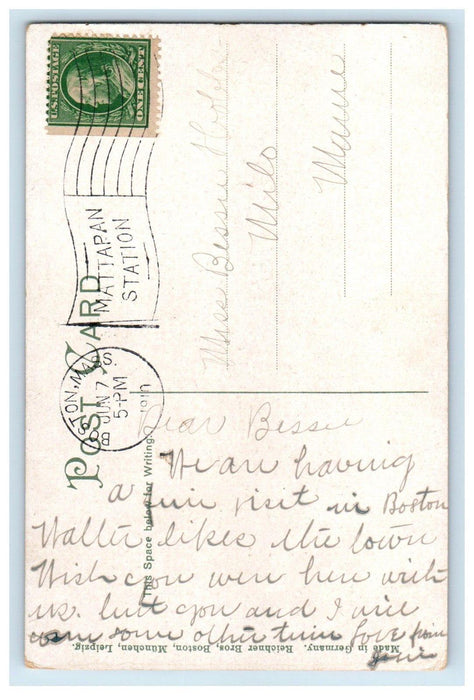 U.S. POSTAGE
ONE CENT
MATTAPAN
STATION
BOSTON, MASS.
JUN 7
5-PM
1910
POST CARD
Miss Bessie
Milo
Maine
This Space below for Writing.
Dear Bessie
We are having
a fine visit in Boston
Walter likes the town
Wish you were here with
us. but you and I will
come some other time love from
Made in Germany. Reichner Bros, Boston, München, Leipzig.